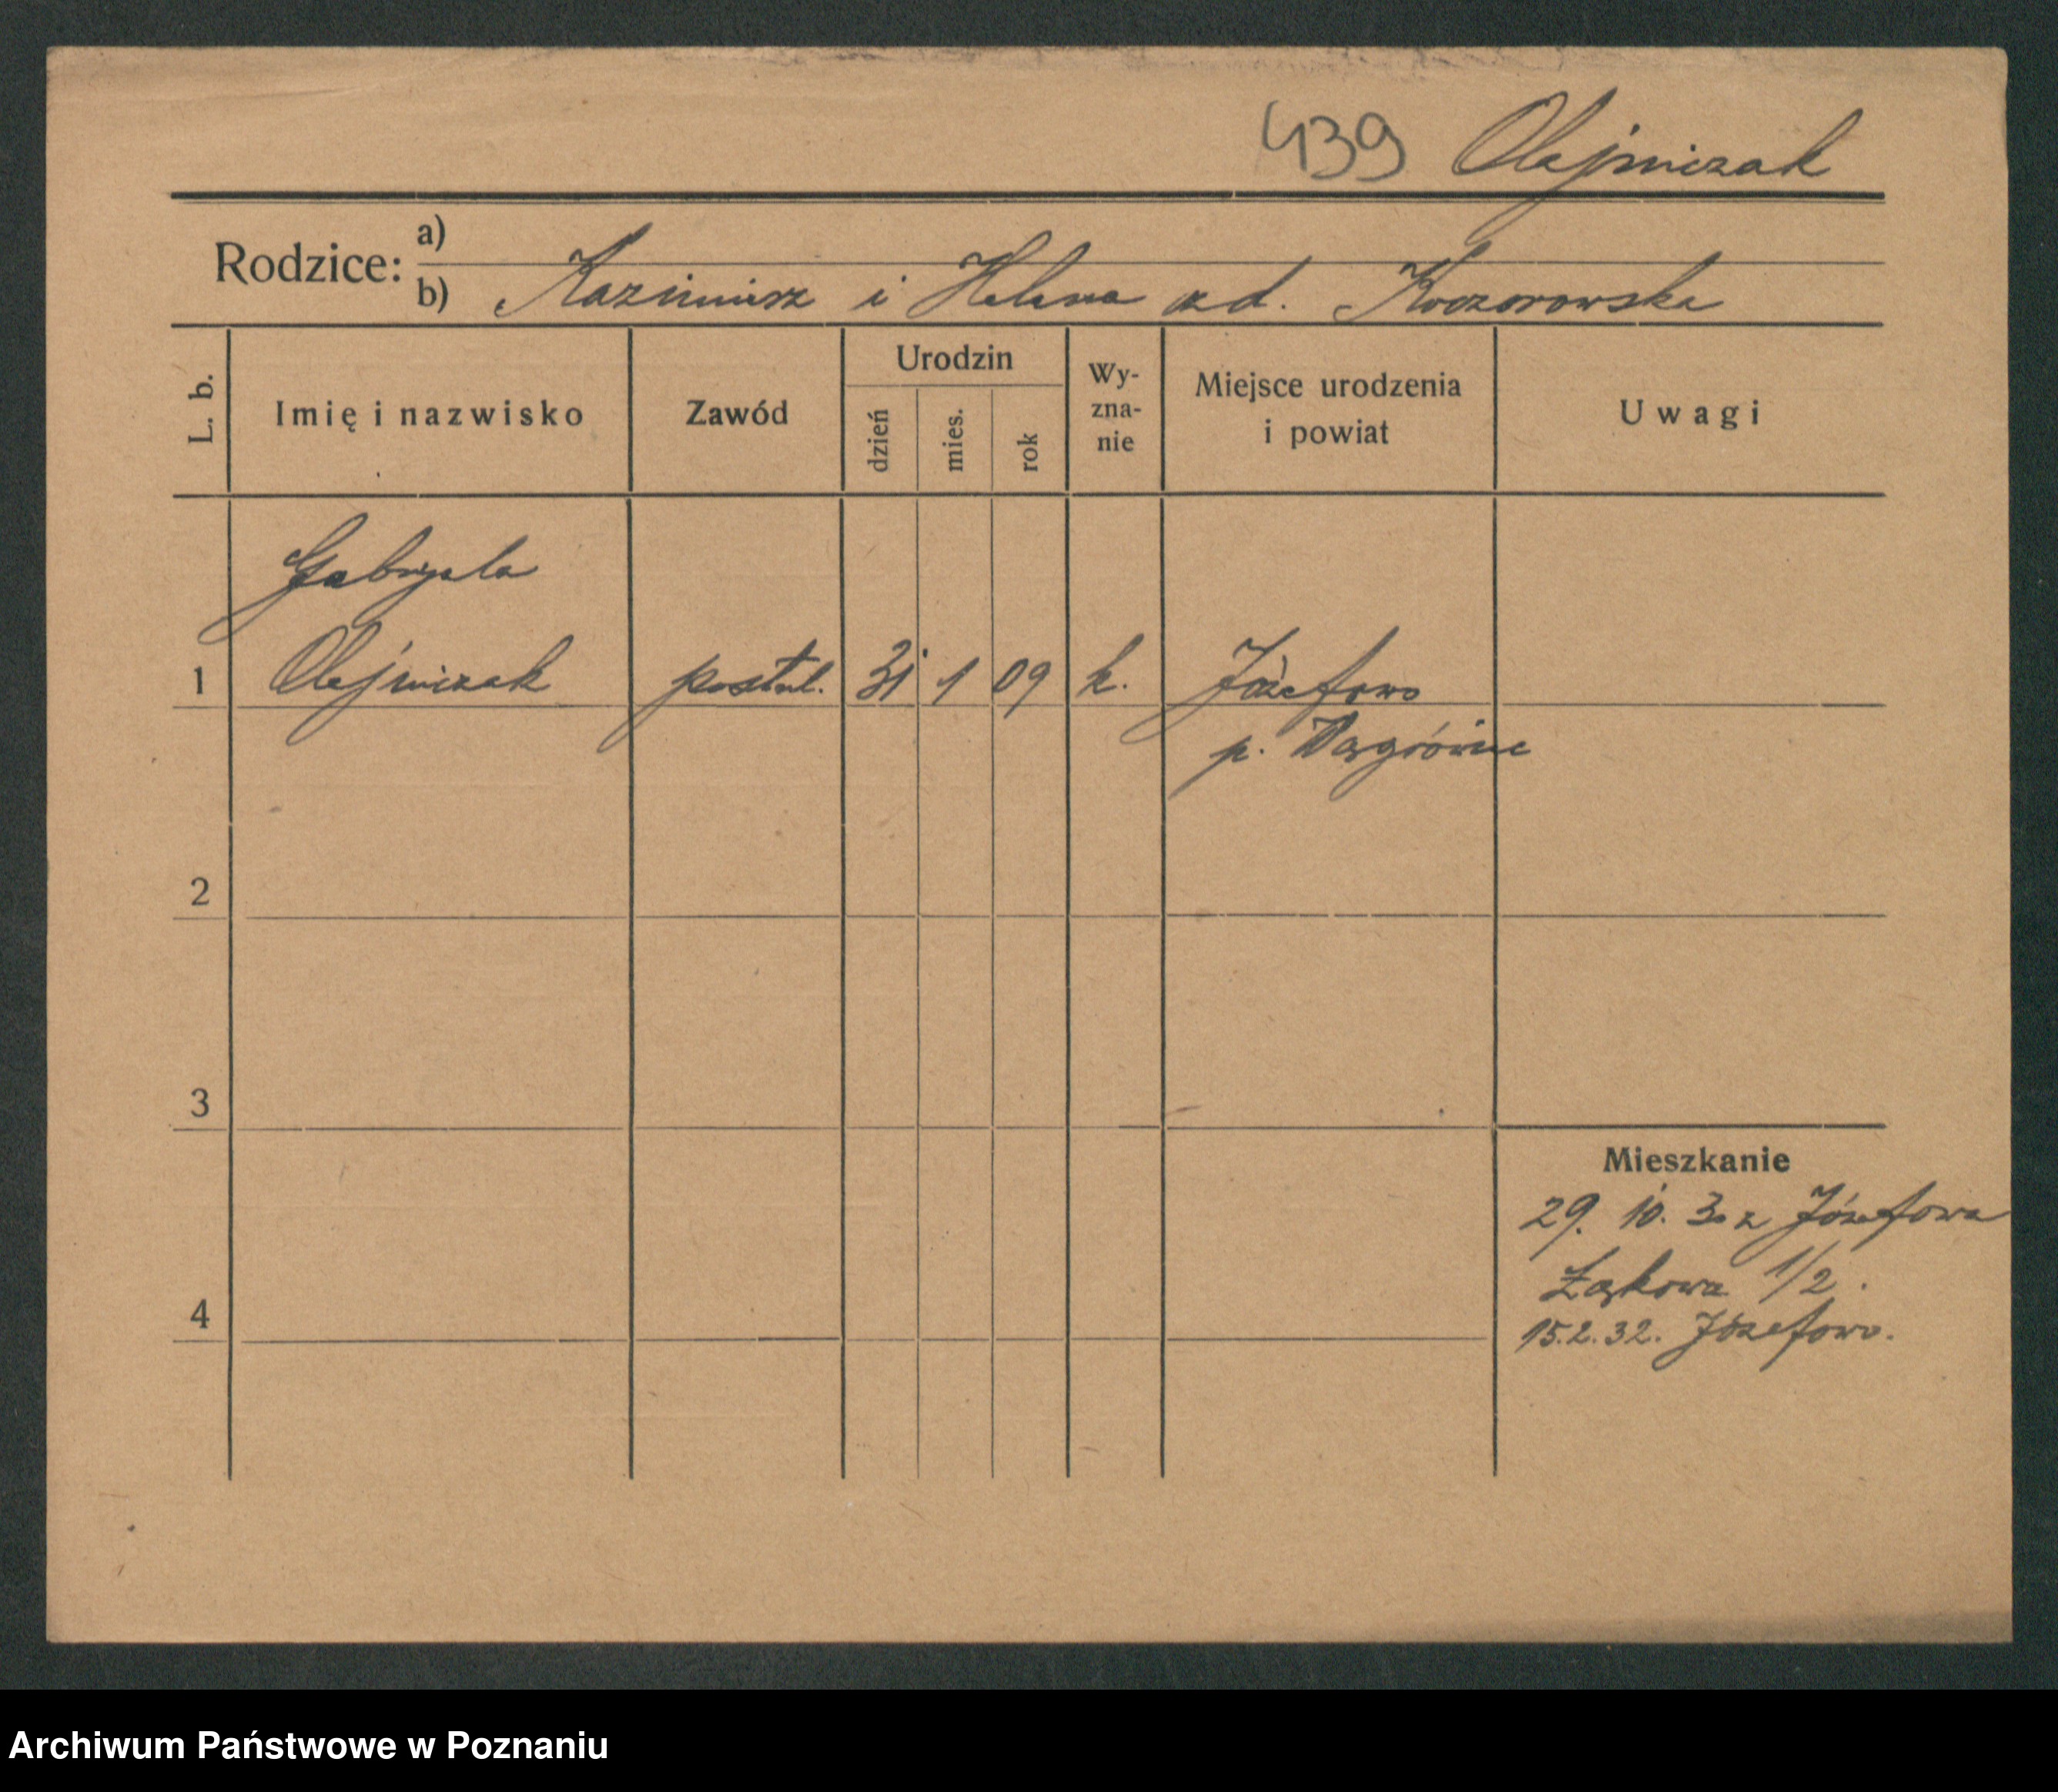 439 Olejniczak
Rodzice: a)
b) Kazimierz i Helena zd. Koczorowska
L. b.
Imię i nazwisko
Zawód
Urodzin
dzień
mies.
rok
Wy-
zna-
nie
Miejsce urodzenia
i powiat
Uwagi
Gabryela
1 Olejniczak postul. 31 1 09 k. Józefowo
p. Wągrówiec
2
3
4
Mieszkanie
29. 10. 30 z Józefowa
Łąkowa 1/2.
15.2.32. Józefowo.
Archiwum Państwowe w Poznaniu